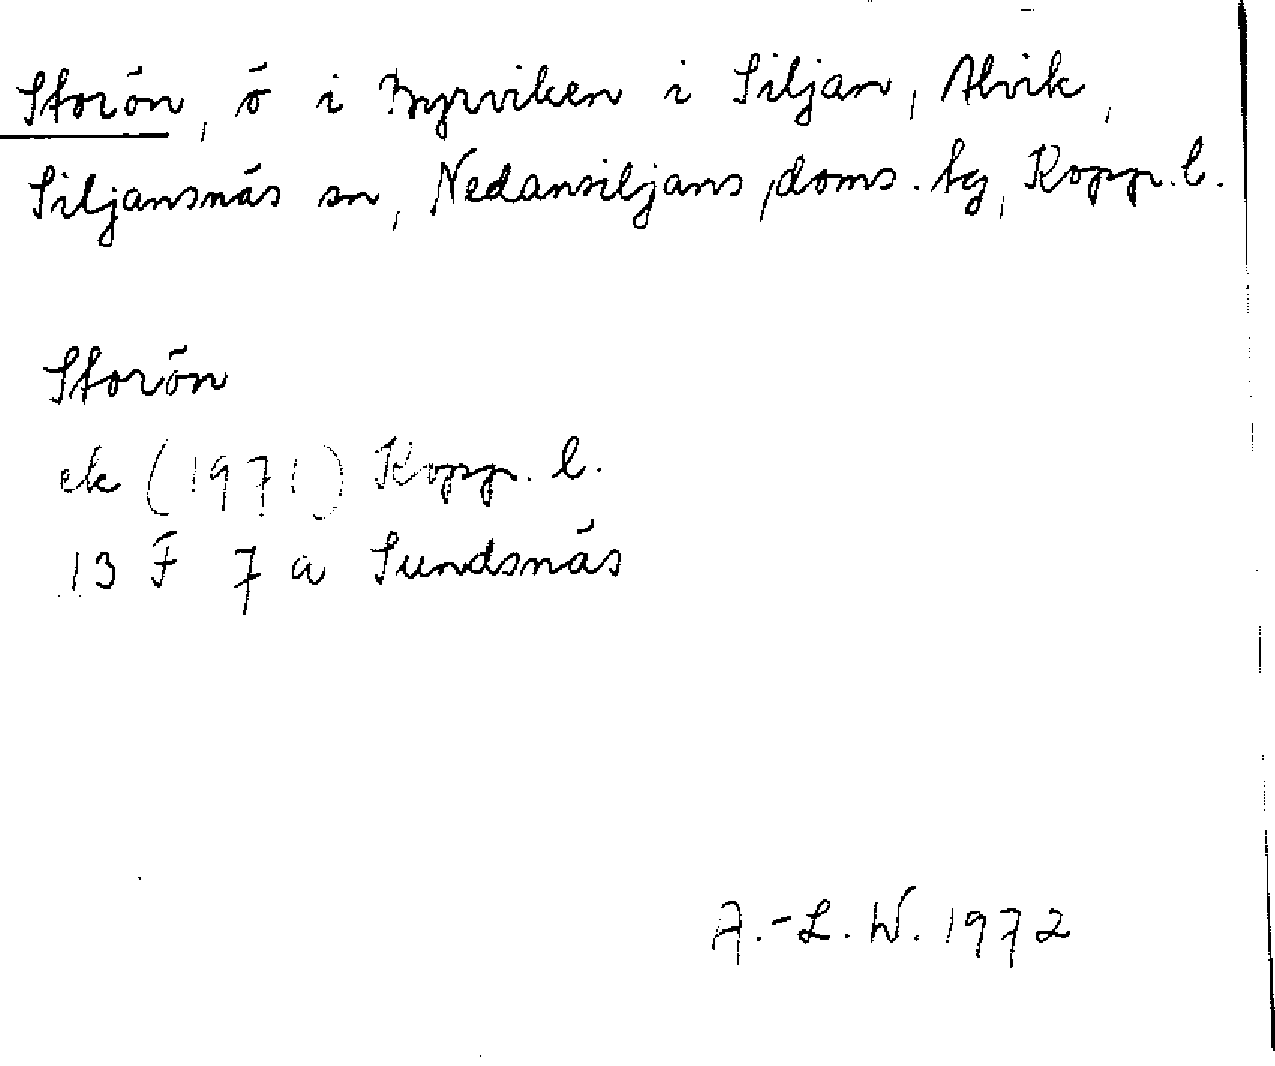 Storön, ö i Byrviken i Siljan, Alvik,
Siljansnäs sn, Nedansiljans doms. tg, Kopp. l.
Storön
ek (1971) Kopp. l.
13 F 7 a Sundsnäs
A.-L. W. 1972